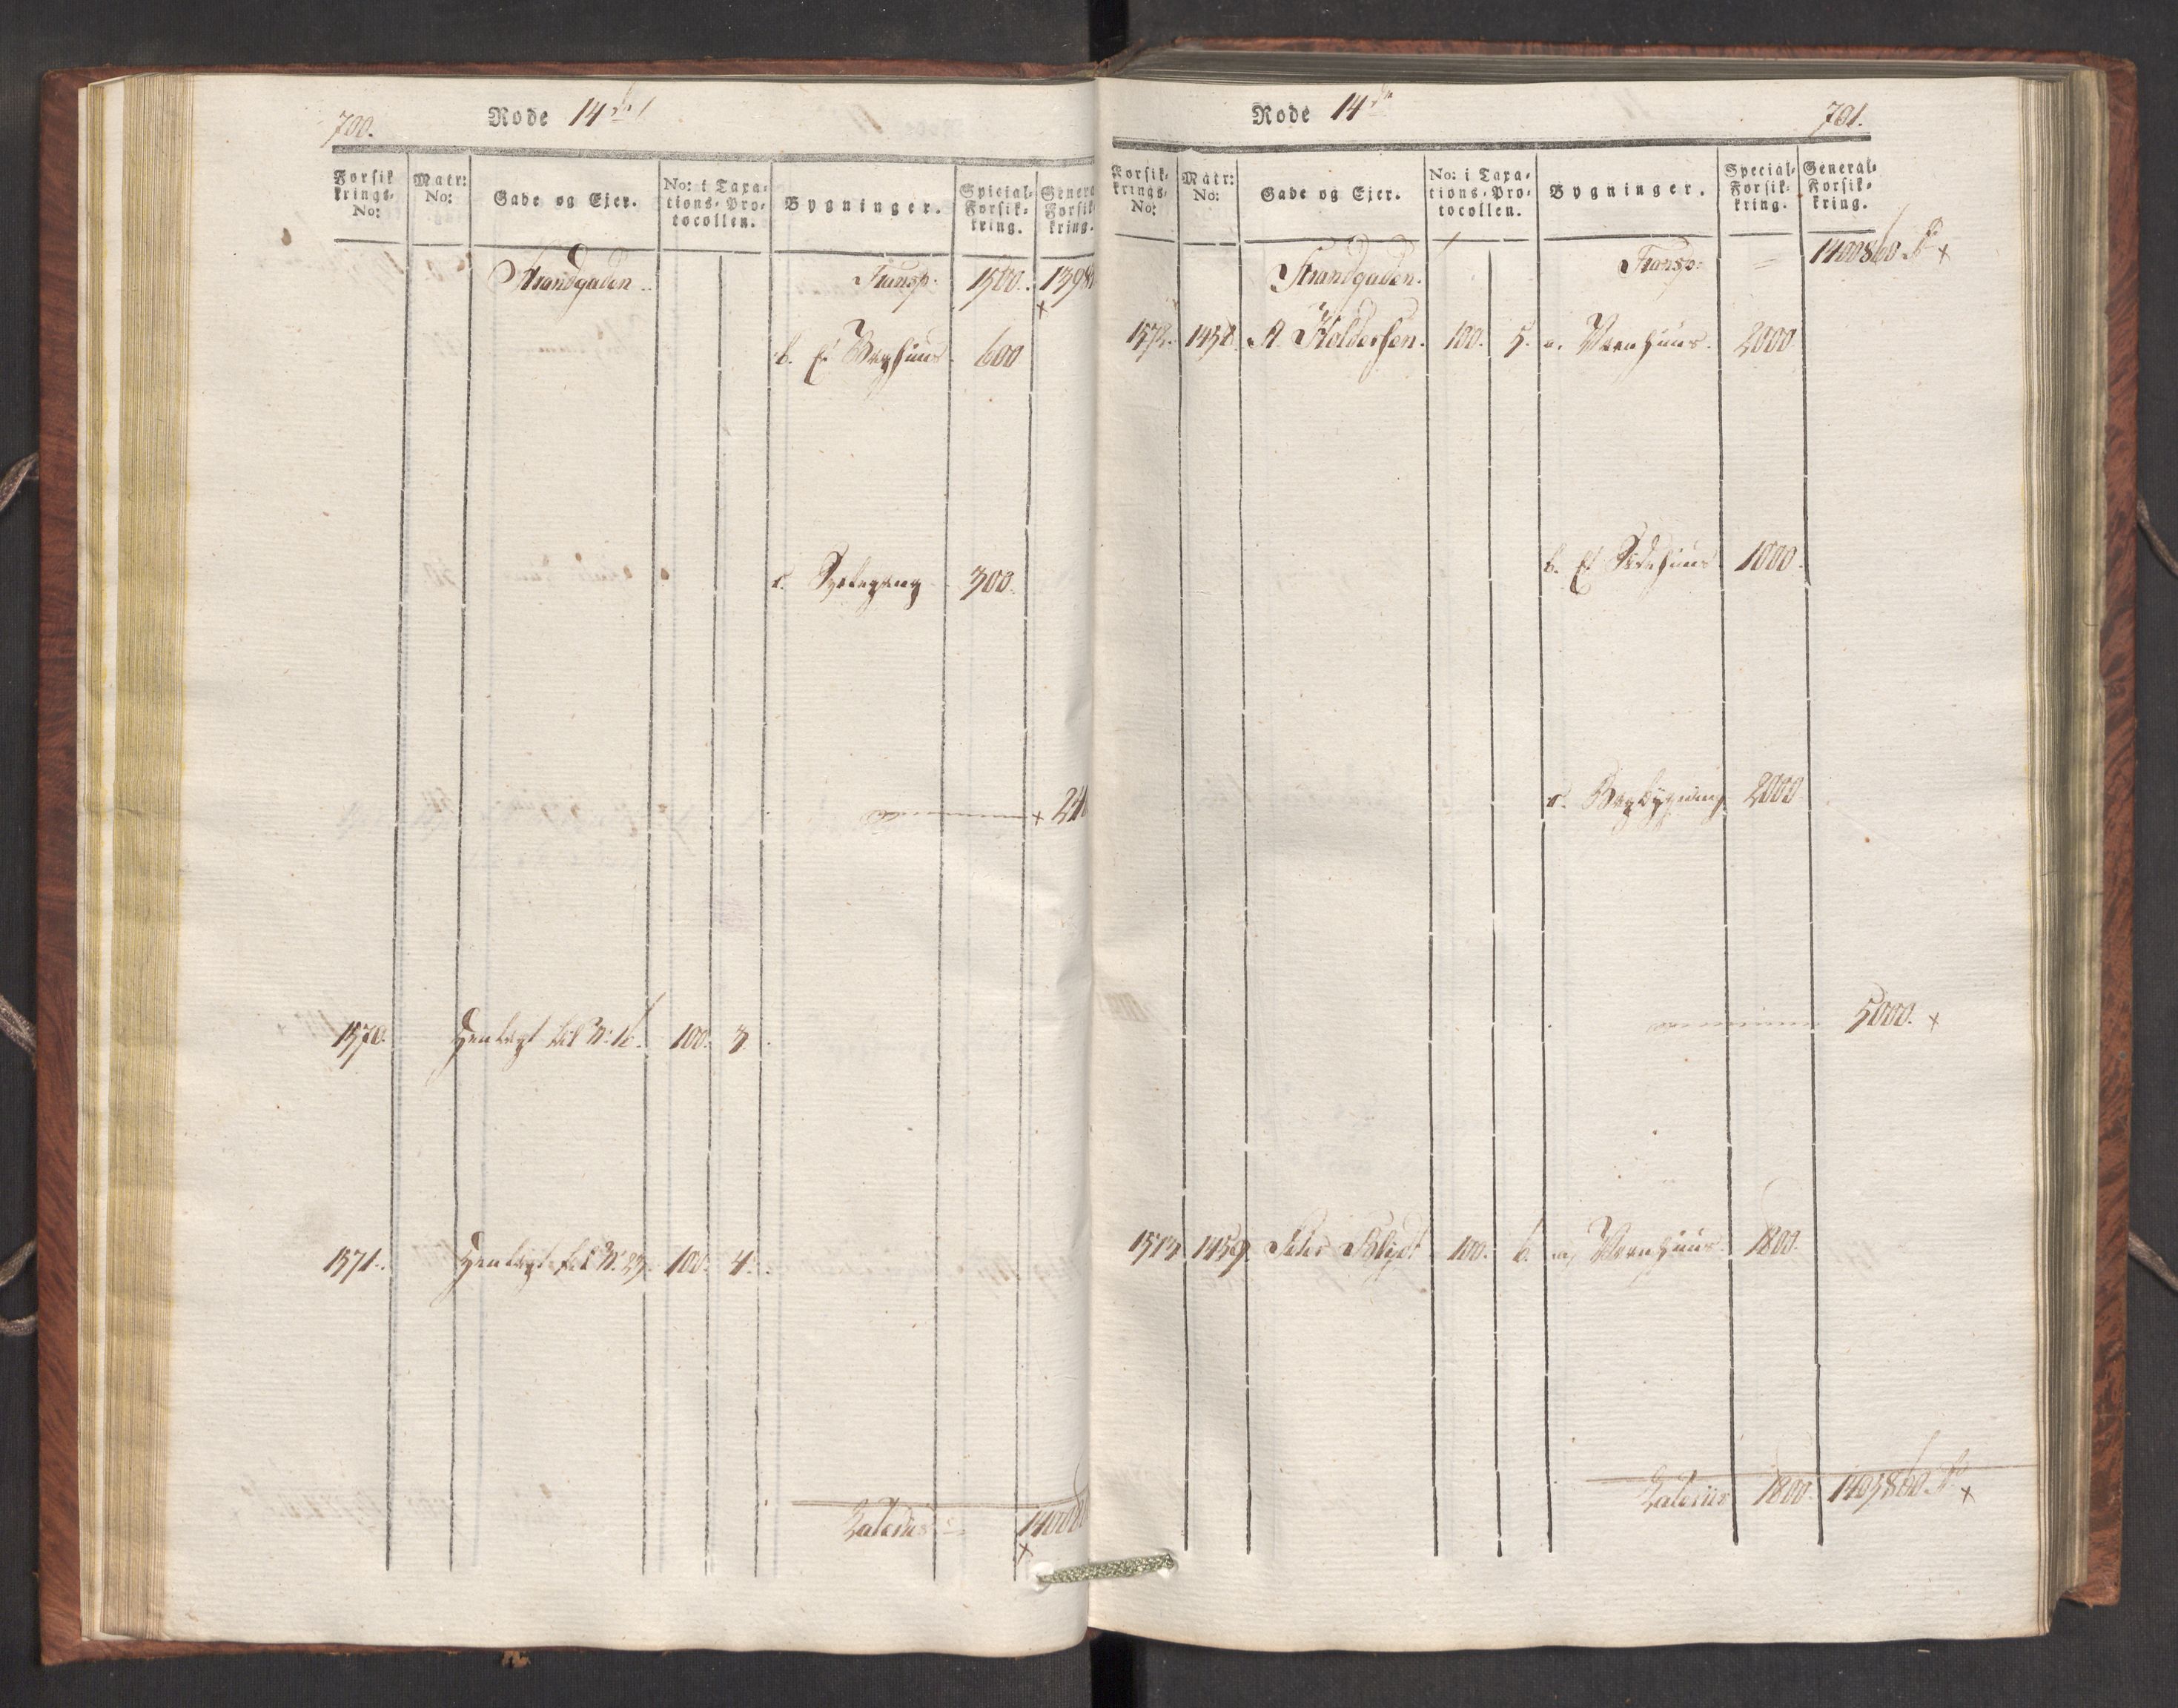 700.
Rode 14de
Forsik
krings-
No:
Matr:
No:
Gade og Ejer.
No: i Taxa-
tions-Pro-
tocollen.
Bygninger.
Special-
Forsik-
kring.
Genera
Forsik
kring.
Strandgaden
Transp. 1500. 1398
b. Et Waghuus 600
c. Svalegang 300.
240
1570. Henlagt til N: 16. 100. 3.
1571. Henlagt til N: 23. 100. 4.
Laterus 14008
Rode 14de
701.
Forsik-
krings-
No:
Matr:
No:
Gade og Ejer.
No: i Taxa-
tions-Pro-
tocollen.
Bygninger.
Special-
Forsik-
kring.
General-
Forsik-
kring.
Strandgaden.
Transp: 1400860
1572. 1458. A. Holdersen. 100. 5. a. Vaanhuus. 2000
b. Et 1000.
c. Bagbygning 2000
5000.
1573. 1459. Peter Blydt 100. 6. a, Vaanhuus 1800.
Laterus 1800. 1405860